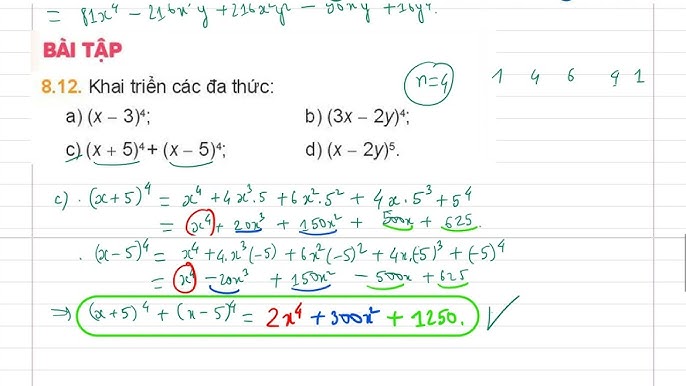 = 81x⁴ - 216x³y + 216x²y² - 96xy³ + 16y⁴.
BÀI TẬP
8.12. Khai triển các đa thức:
n=4 1 4 6 4 1
a) (x – 3)⁴; b) (3x – 2y)⁴;
c) (x + 5)⁴ + (x – 5)⁴; d) (x – 2y)⁵.
c) . (x+5)⁴ = x⁴ + 4x³.5 + 6x².5² + 4x.5³ + 5⁴
= x⁴ + 20x³ + 150x² + 500x + 625.
. (x-5)⁴ = x⁴ + 4.x³(-5) + 6x²(-5)² + 4x.(-5)³ + (-5)⁴
= x⁴ - 20x³ + 150x² - 500x + 625
⇒ (x+5)⁴ + (x-5)⁴ = 2x⁴ + 300x² + 1250. ✓